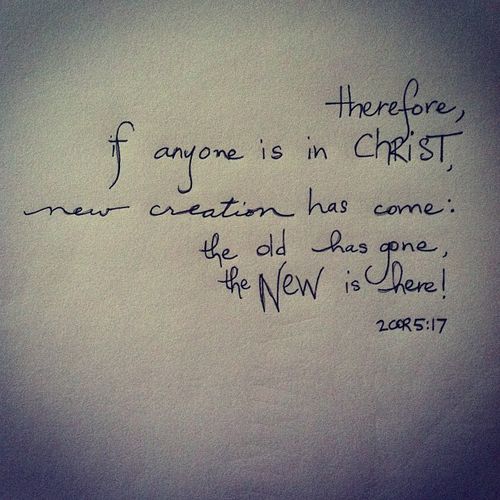 therefore,
if anyone is in ChRiST,
new creation has come:
the old has gone,
the NeW is here!
2COR5:17